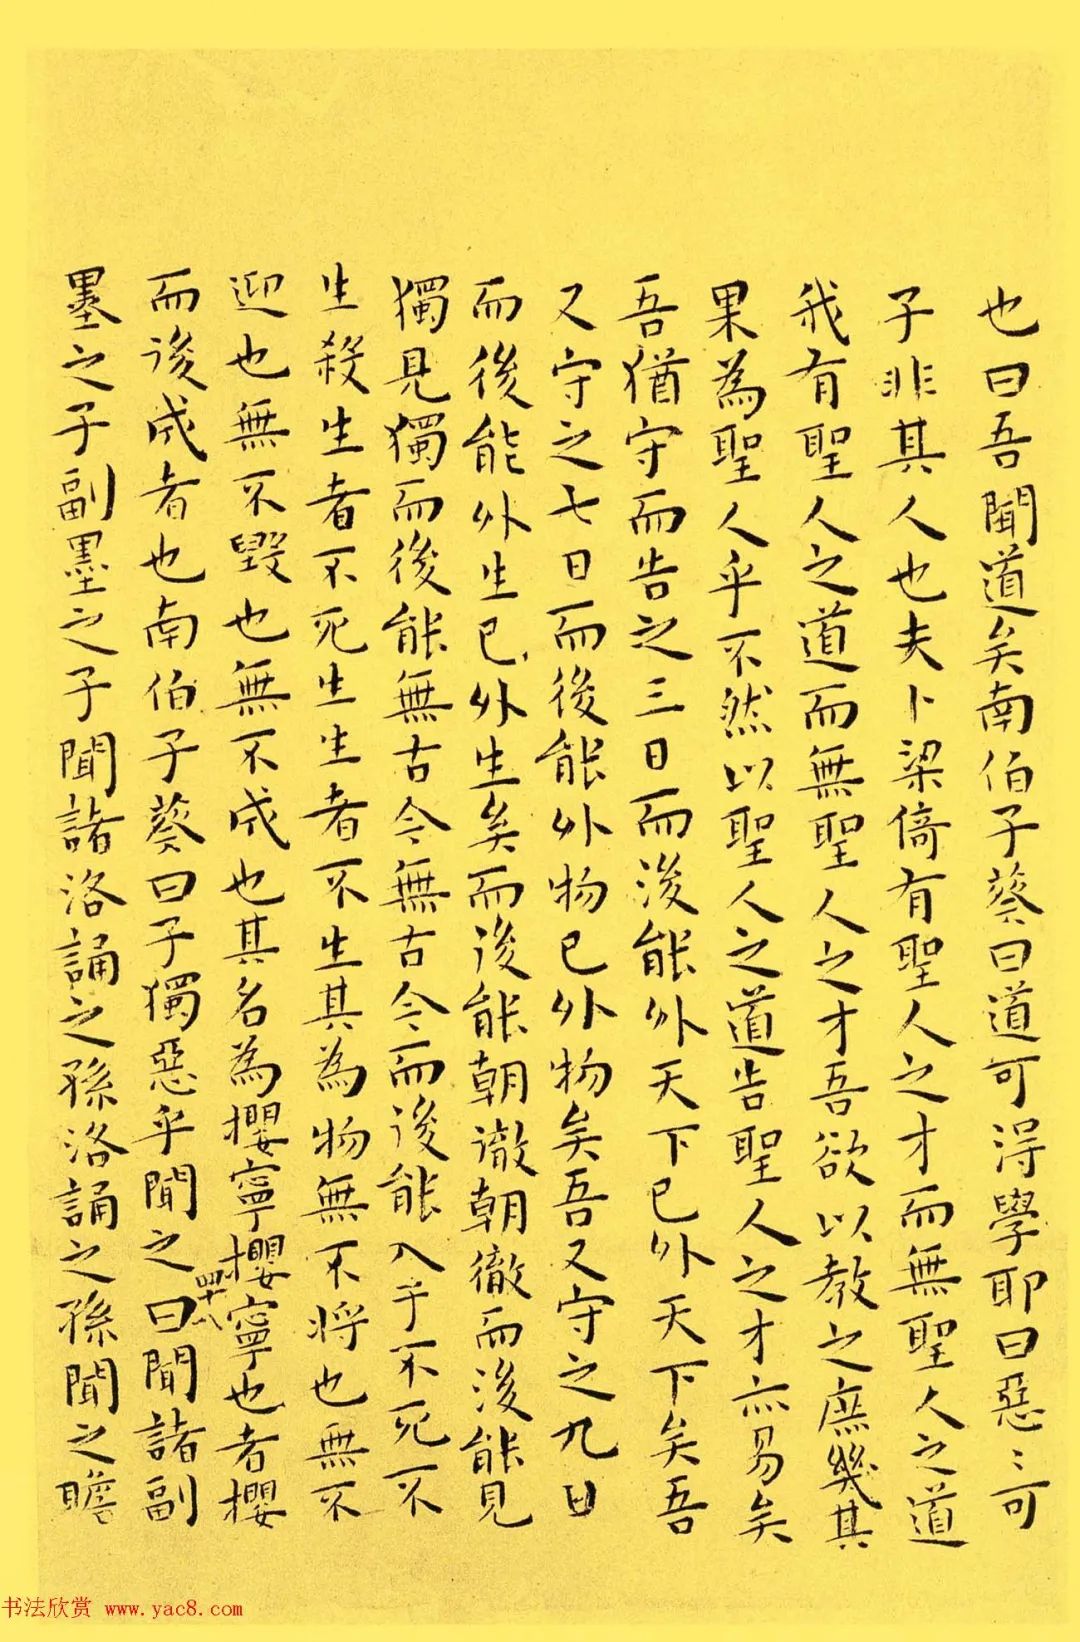 也曰吾聞道矣南伯子葵曰道可得學耶曰惡〻可
子非其人也夫卜梁倚有聖人之才而無聖人之道
我有聖人之道而無聖人之才吾欲以教之庶幾其
果為聖人乎不然以聖人之道告聖人之才亦易矣
吾猶守而告之三日而後能外天下已外天下矣吾
又守之七日而後能外物已外物矣吾又守之九日
而後能外生已外生矣而後能朝徹朝徹而後能見
獨見獨而後能無古今無古今而後能入乎不死不
生殺生者不死生生者不生其為物無不將也無不
迎也無不毀也無不成也其名為攖寧攖寧也者攖
而後成者也南伯子葵曰子獨惡乎聞之曰聞諸副
墨之子副墨之子聞諸洛誦之孫洛誦之孫聞之瞻
四十八
书法欣赏 www.yac8.com